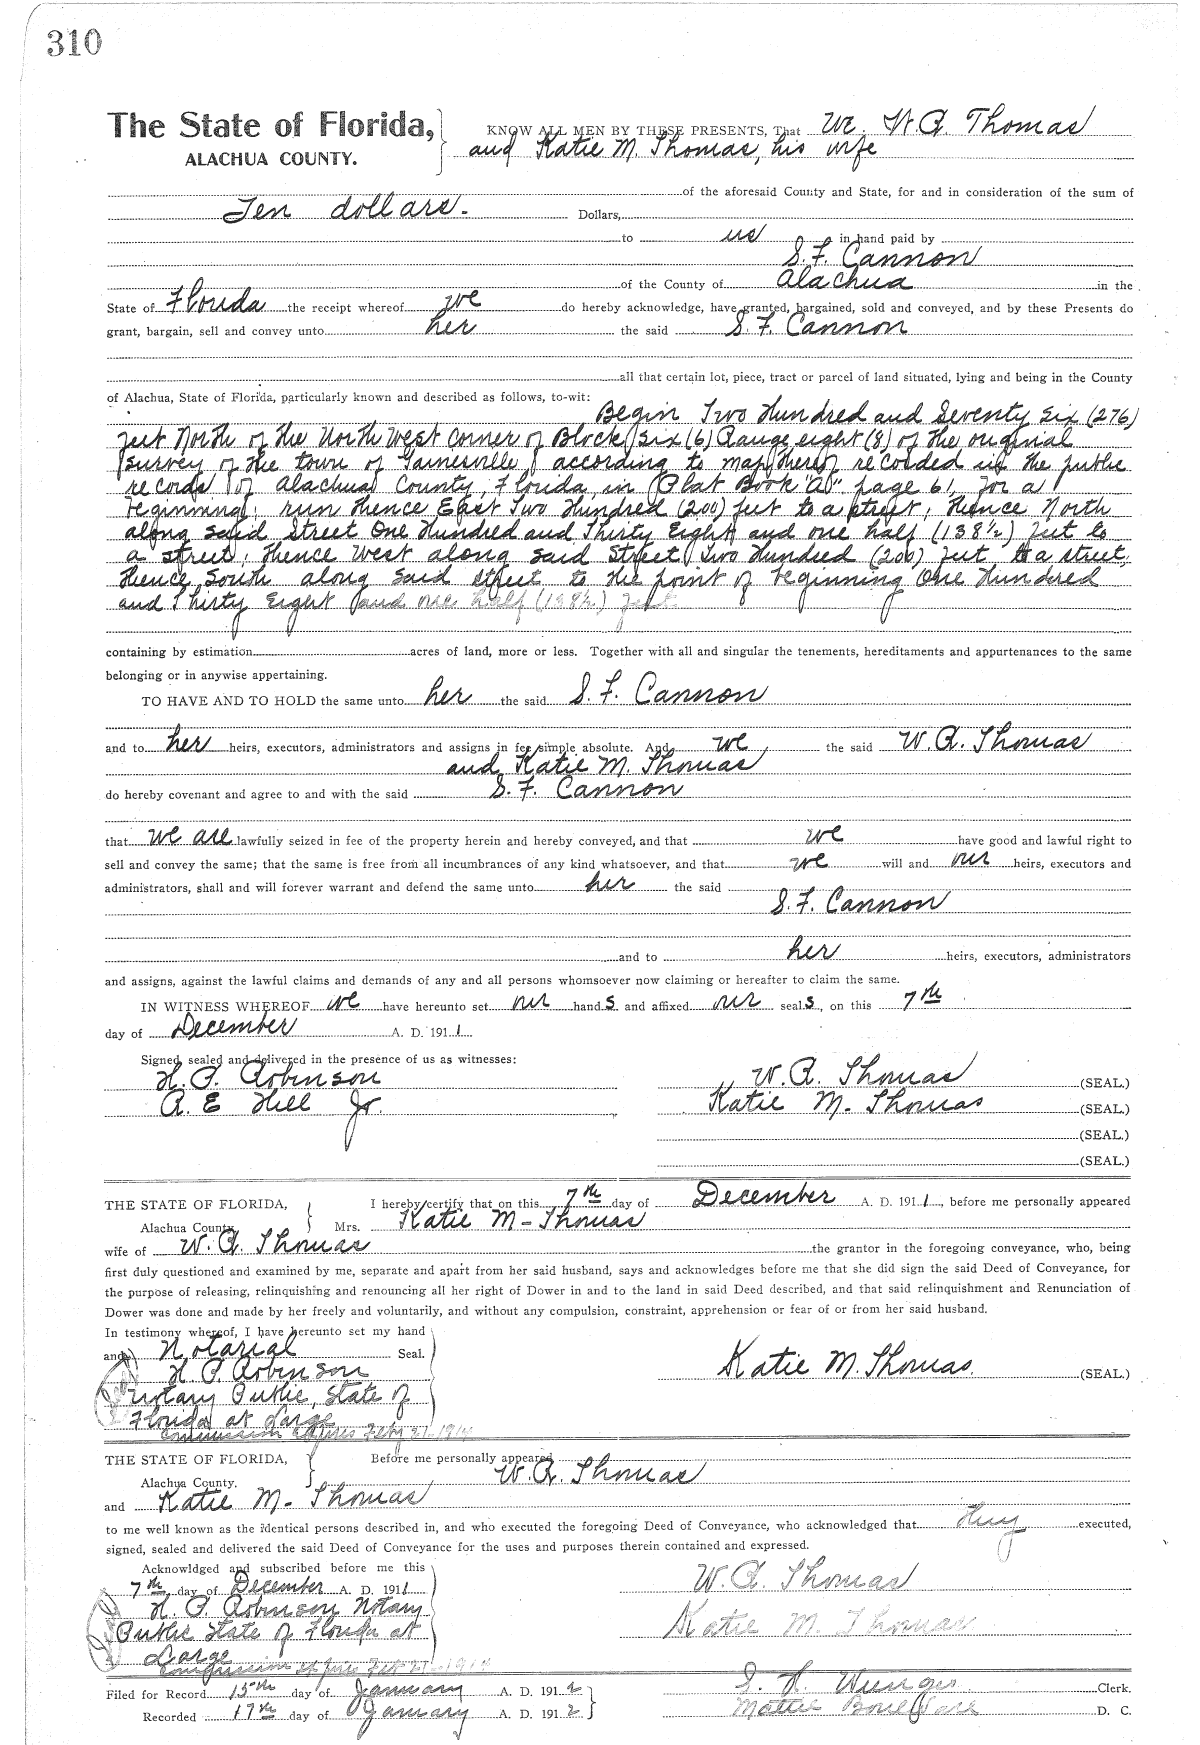 310
The State of Florida, KNOW ALL MEN BY THESE PRESENTS, That We W. R. Thomas
ALACHUA COUNTY. and Katie M. Thomas, his wife
of the aforesaid County and State, for and in consideration of the sum of
Ten dollars. Dollars,
to us in hand paid by
S. F. Cannon
of the County of Alachua in the
State of Florida the receipt whereof we do hereby acknowledge, have granted, bargained, sold and conveyed, and by these Presents do
grant, bargain, sell and convey unto her the said S. F. Cannon
all that certain lot, piece, tract or parcel of land situated, lying and being in the County
of Alachua, State of Florida, particularly known and described as follows, to-wit:
Begin Two Hundred and Seventy Six (276)
feet North of the North West Corner of Block Six (6) Range eight (8) of the original
survey of the town of Gainesville, according to map thereof recorded in the public
records of Alachua County, Florida, in Plat Book "A" page 61, for a
beginning; run thence East Two Hundred (200) feet to a street; thence North
along said Street One Hundred and Thirty Eight and one half (138½) feet to
a street; thence West along said Street Two Hundred (200) feet to a street;
thence South along said street to the point of beginning One Hundred
and Thirty Eight and one half (138½) feet
containing by estimation acres of land, more or less. Together with all and singular the tenements, hereditaments and appurtenances to the same
belonging or in anywise appertaining.
TO HAVE AND TO HOLD the same unto her the said S. F. Cannon
and to her heirs, executors, administrators and assigns in fee simple absolute. And we, the said W. R. Thomas
and Katie M. Thomas
do hereby covenant and agree to and with the said S. F. Cannon
that we are lawfully seized in fee of the property herein and hereby conveyed, and that we have good and lawful right to
sell and convey the same; that the same is free from all incumbrances of any kind whatsoever, and that we will and our heirs, executors and
administrators, shall and will forever warrant and defend the same unto her the said
S. F. Cannon
and to her heirs, executors, administrators
and assigns, against the lawful claims and demands of any and all persons whomsoever now claiming or hereafter to claim the same.
IN WITNESS WHEREOF we have hereunto set our hands and affixed our seals, on this 7th
day of December A. D. 1911
Signed, sealed and delivered in the presence of us as witnesses:
H. P. Robinson W. R. Thomas (SEAL.)
A. E Hill Jr. Katie M. Thomas (SEAL.)
(SEAL.)
(SEAL.)
THE STATE OF FLORIDA, I hereby certify that on this 7th day of December A. D. 1911, before me personally appeared
Alachua County. Mrs. Katie M - Thomas
wife of W. R. Thomas the grantor in the foregoing conveyance, who, being
first duly questioned and examined by me, separate and apart from her said husband, says and acknowledges before me that she did sign the said Deed of Conveyance, for
the purpose of releasing, relinquishing and renouncing all her right of Dower in and to the land in said Deed described, and that said relinquishment and Renunciation of
Dower was done and made by her freely and voluntarily, and without any compulsion, constraint, apprehension or fear of or from her said husband.
In testimony whereof, I have hereunto set my hand
and Notarial Seal.
H. P. Robinson Katie M. Thomas. (SEAL.)
Notary Public, State of
Florida at Large
Commission expires Feby 27-1914
THE STATE OF FLORIDA, Before me personally appeared
Alachua County. W. R. Thomas
and Katie M. Thomas
to me well known as the identical persons described in, and who executed the foregoing Deed of Conveyance, who acknowledged that they executed,
signed, sealed and delivered the said Deed of Conveyance for the uses and purposes therein contained and expressed.
Acknowldged and subscribed before me this
7th day of December A. D. 1911 W. R. Thomas
H. P. Robinson Notary Katie M Thomas
Public State of Florida at
Large
Commission expires Feb 27-1914
Filed for Record 15th day of January A. D. 1912 Clerk.
Recorded 17th day of January A. D. 1912 Mattie D. C.